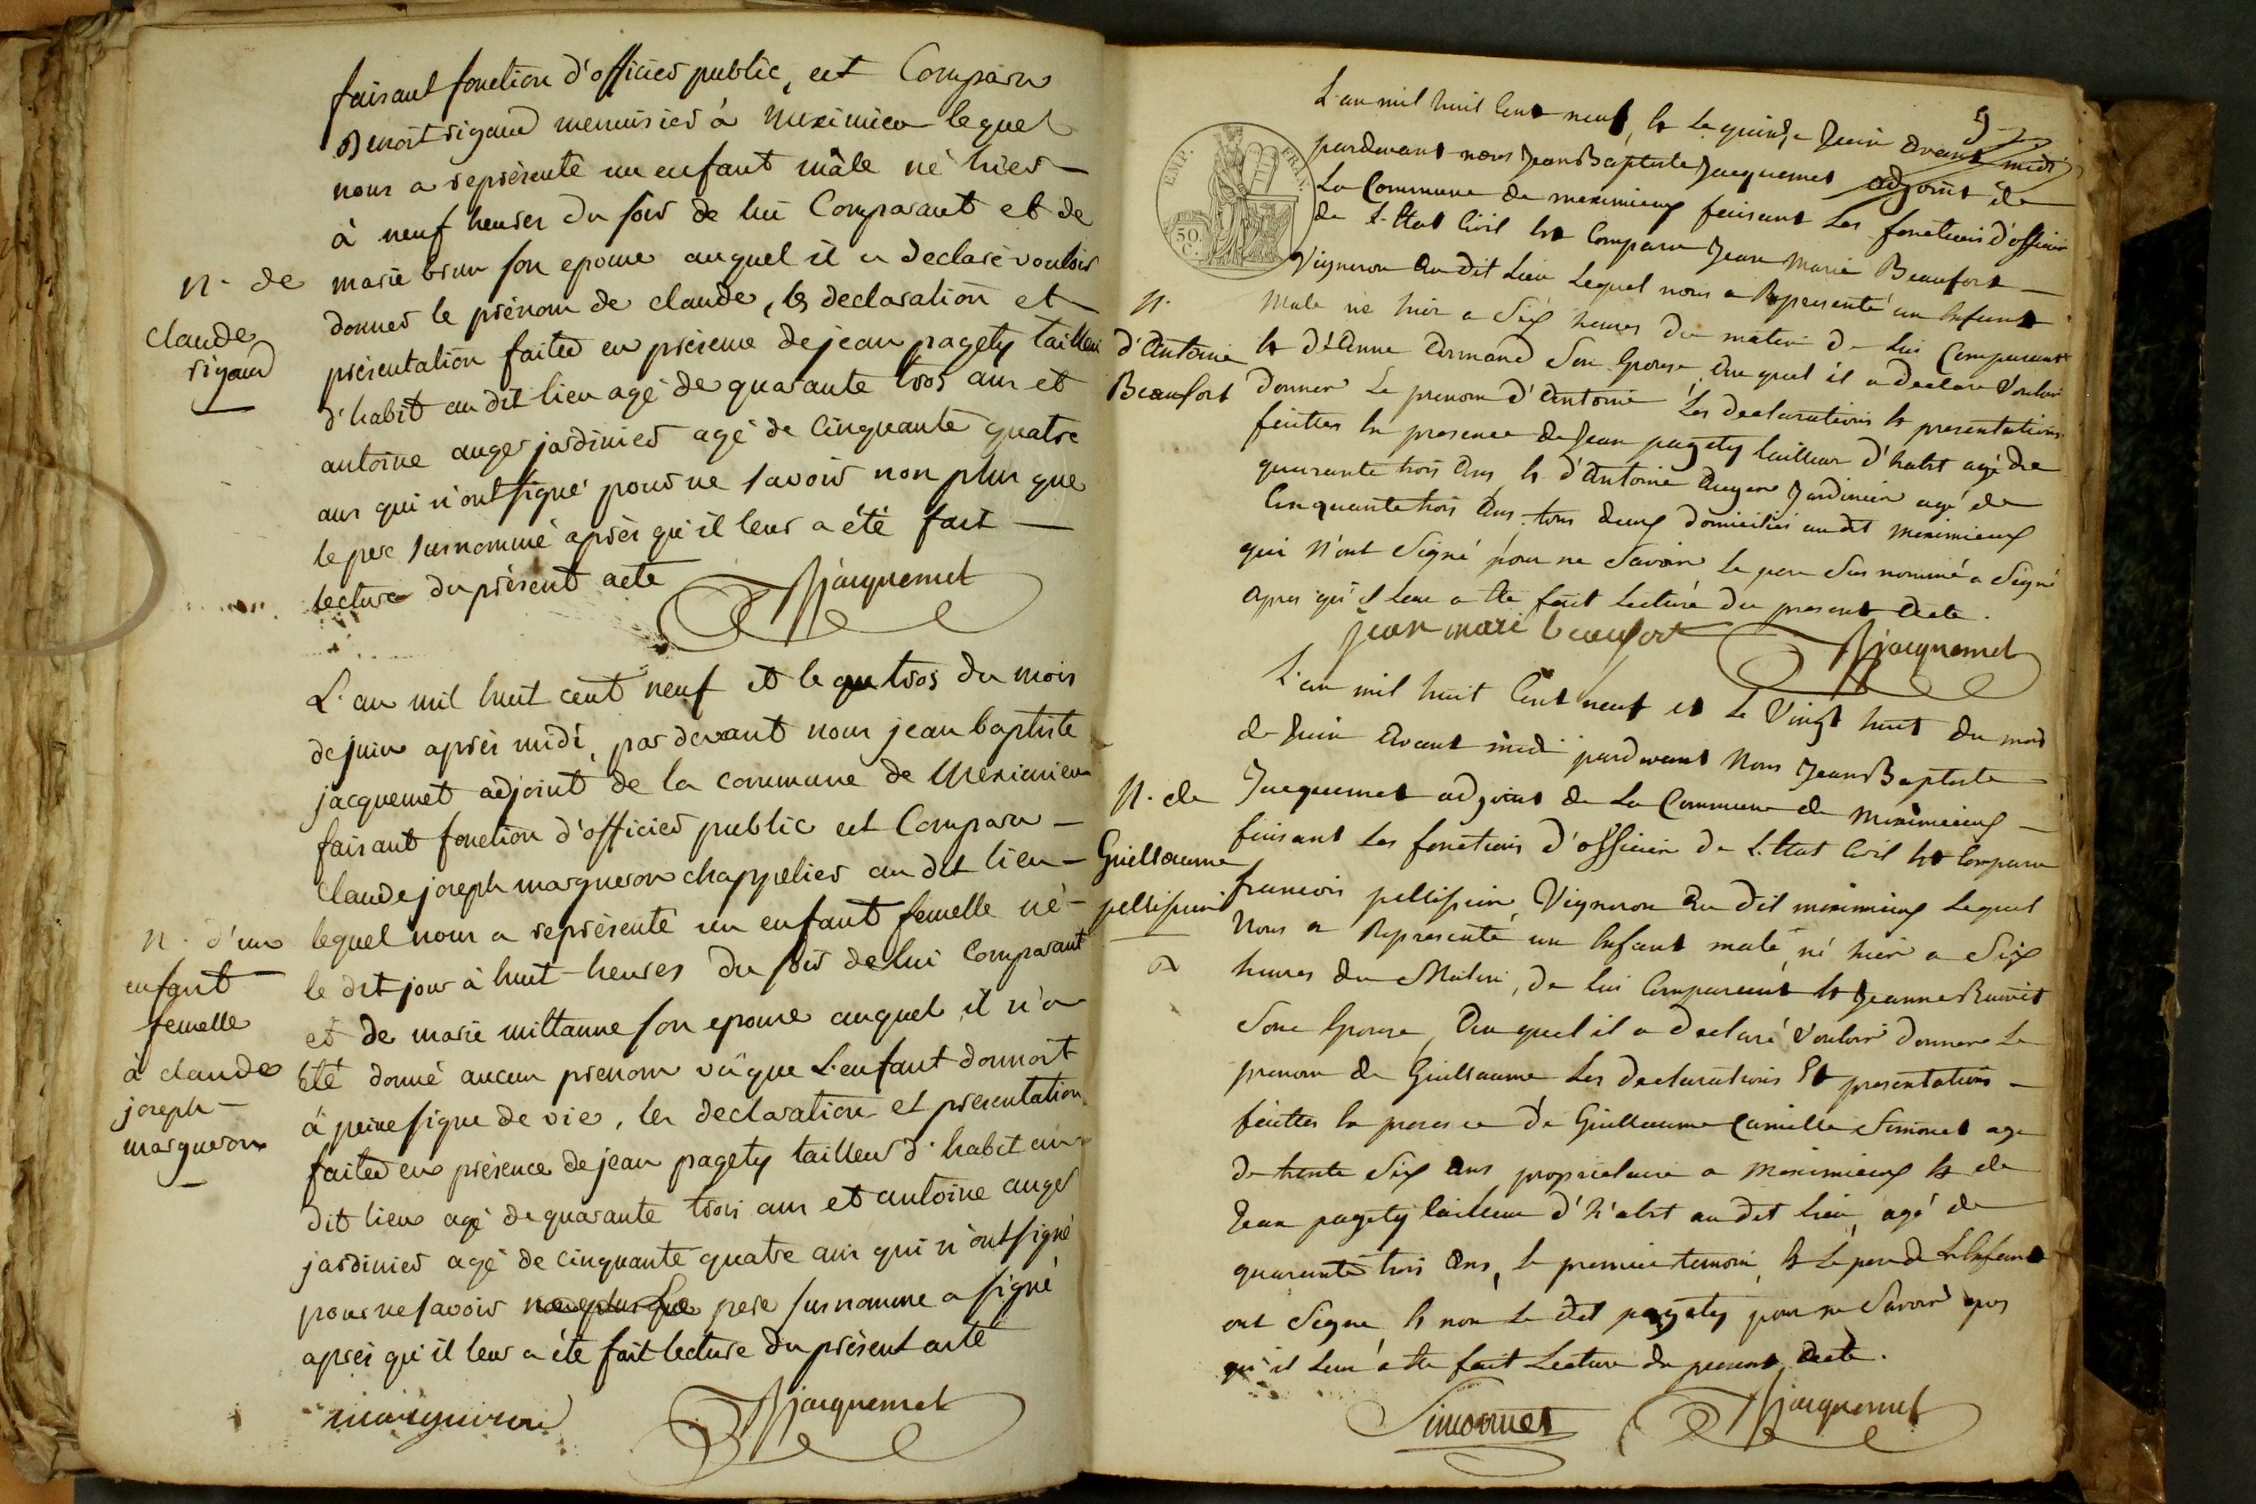 faisant fonction d'officier public, est Comparu
Benoit rigaud menuisier à Meximieu lequel
nous a représenté un enfant mâle né hier
à neuf heures du soir de lui Comparant et de
n. de
claude
rigaud
marie brun son epouse auquel il a declaré vouloir
donner le prénom de claude, les declaration et
présentation faites en présence de jean pagety tailleur
d'habit au dit lieu agé de quarante trois ans et
antoine auger jardinier agé de Cinquante quatre
ans qui n'ont signé pour ne savoir non plus que
le pere susnommé après qu'il leur a été fait
lecture du présent acte
jacquemet
L'an mil huit cent neuf et le trois du mois
de juin après midi, par devant nous jean baptiste
jacquemet adjoint de la commune de Meximieu
faisant fonction d'officier public est Comparu
Claude joseph margueron chappelier au dit lieu
n. d'un
enfant
femelle
à claude
joseph
margueron
lequel nous a représenté un enfant femelle né
le dit jour à huit heures du soir de lui Comparant
et de marie mittanne son epouse auquel il n'a
été donné aucun prenom vû que L'enfant donnoit
à peine signe de vie, les declaration et présentation
faites en présence de jean pagety tailleur d'habit au
dit lieu agé de quarante trois ans et antoine auger
jardinier agé de cinquante quatre ans qui n'ont signé
pour ne savoir non plus que pere susnomme a signé
après qu'il leur a été fait lecture du présent acte
margueron
jacquemet
9
L'an mil huit Cent neuf, et Le quinze Juin Avant midi
pardevant nous Jean Baptiste Jacquemet adjoint de
La Commune de meximieux faisant Les fonctions d'officier
de L'Etat Civil Est Comparu Jean Marie Beaufort
EMP. FRAN.
50.
C.
Vigneron Au dit Lieu Lequel nous a Representé un Enfant
n.
d'Antoine
Beaufort
Male né hier a Six heures du matin de Lui Comparant
Et D'Anne Armand Son Epouse, Au quel il a declare Vouloir
donner Le prenom d'Antoine Les declarations Et presentations
faittes En presence de Jean pagety tailleur d'habit agé de
quarante trois Ans, Et d'Antoine Auger Jardinier agé de
Cinquante trois Ans, tous deux domiciliés au dit meximieux
qui N'ont Signé pour ne Savoir Le pere Sus nommé a Signé
Apres qu'il Leur a Ete fait Lecture du present Acte.
jean marie beaufort
jacquemet
L'an mil huit Cent neuf et Le Vingt huit du mois
de Juin Avant midi pardevant Nous Jean Baptiste
N. de
Guillaume
pellissier
Jacquemet adjoint de La Commune de Meximieux
faisant Les fonctions d'officier de L'Etat Civil Est Comparu
francois pellissier, Vigneron Au dit meximieux Lequel
Nous a Representé un Enfant male, né hier a Six
heures du Matin, de lui Comparant Et Jeanne
Son Epouse, Au quel il a declaré Vouloir donner Le
prenom de Guillaume Les declarations Et presentations
faittes En presence de Guillaume Camille Simonet age
de trente Six Ans proprietaire a Meximieux Et de
Jean pagety tailleur d'habit au dit lieu, agé de
quarante trois Ans, Le premier temoin, Et Le pere de L'Enfant
ont Signé, Et non Le dit pagety pour ne Savoir apres
qu'il Leur a Ete fait Lecture du present Acte.
Simonnet
jacquemet